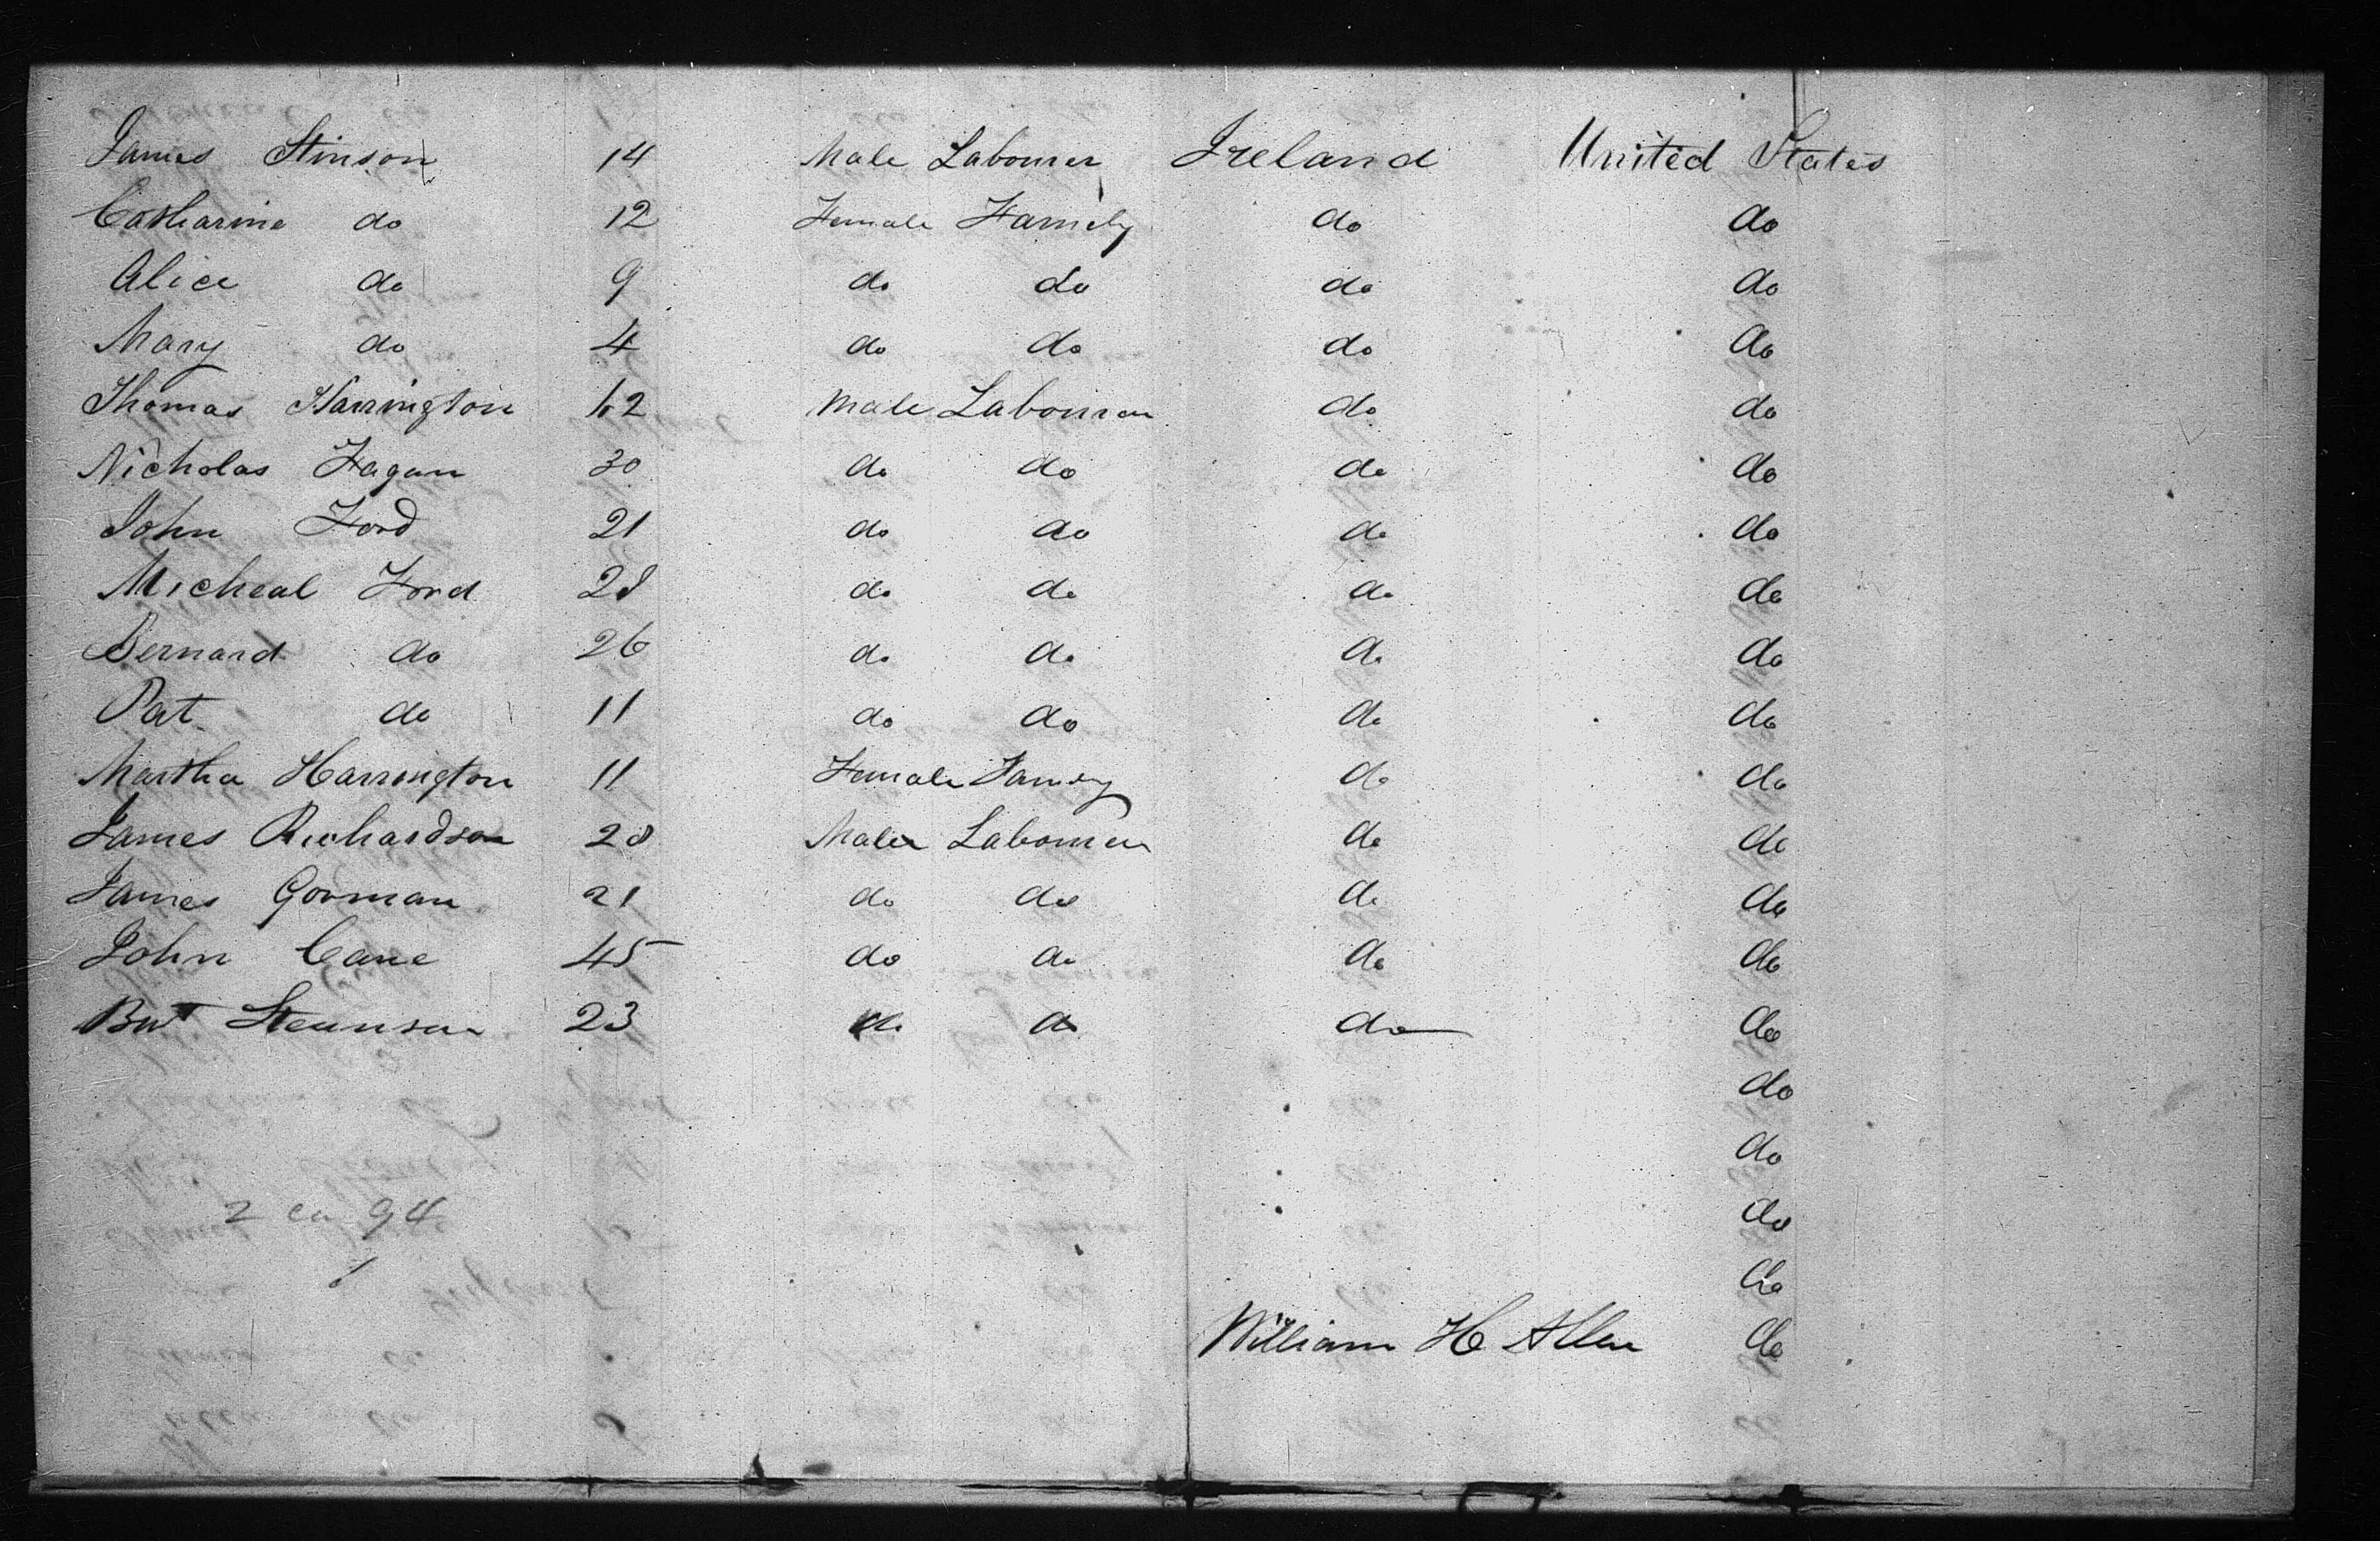 James Stinson 14 Male Labourer Ireland United States
Catharine do 12 Female Family do do
Alice do 9 do do do do
Mary do 4 do do do do
Thomas Harrington 62 Male Labourer do do
Nicholas Fagan 30 do do do do
John Ford 21 do do do do
Micheal Ford 28 do do do do
Bernard do 26 do do do do
Pat do 11 do do do do
Martha Harrington 11 Female Family do do
James Richardson 20 Male Labourer do do
James Gorman 21 do do do do
John Cane 45 do do do do
23 do do do do
do
do
2 94 do
do
William H Allen do